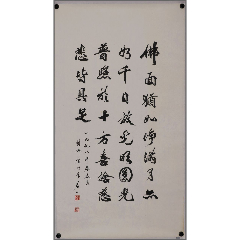 佛面猶如净滿月亦
如千日放光明圓光
普照於十方喜捨慈
悲皆具足